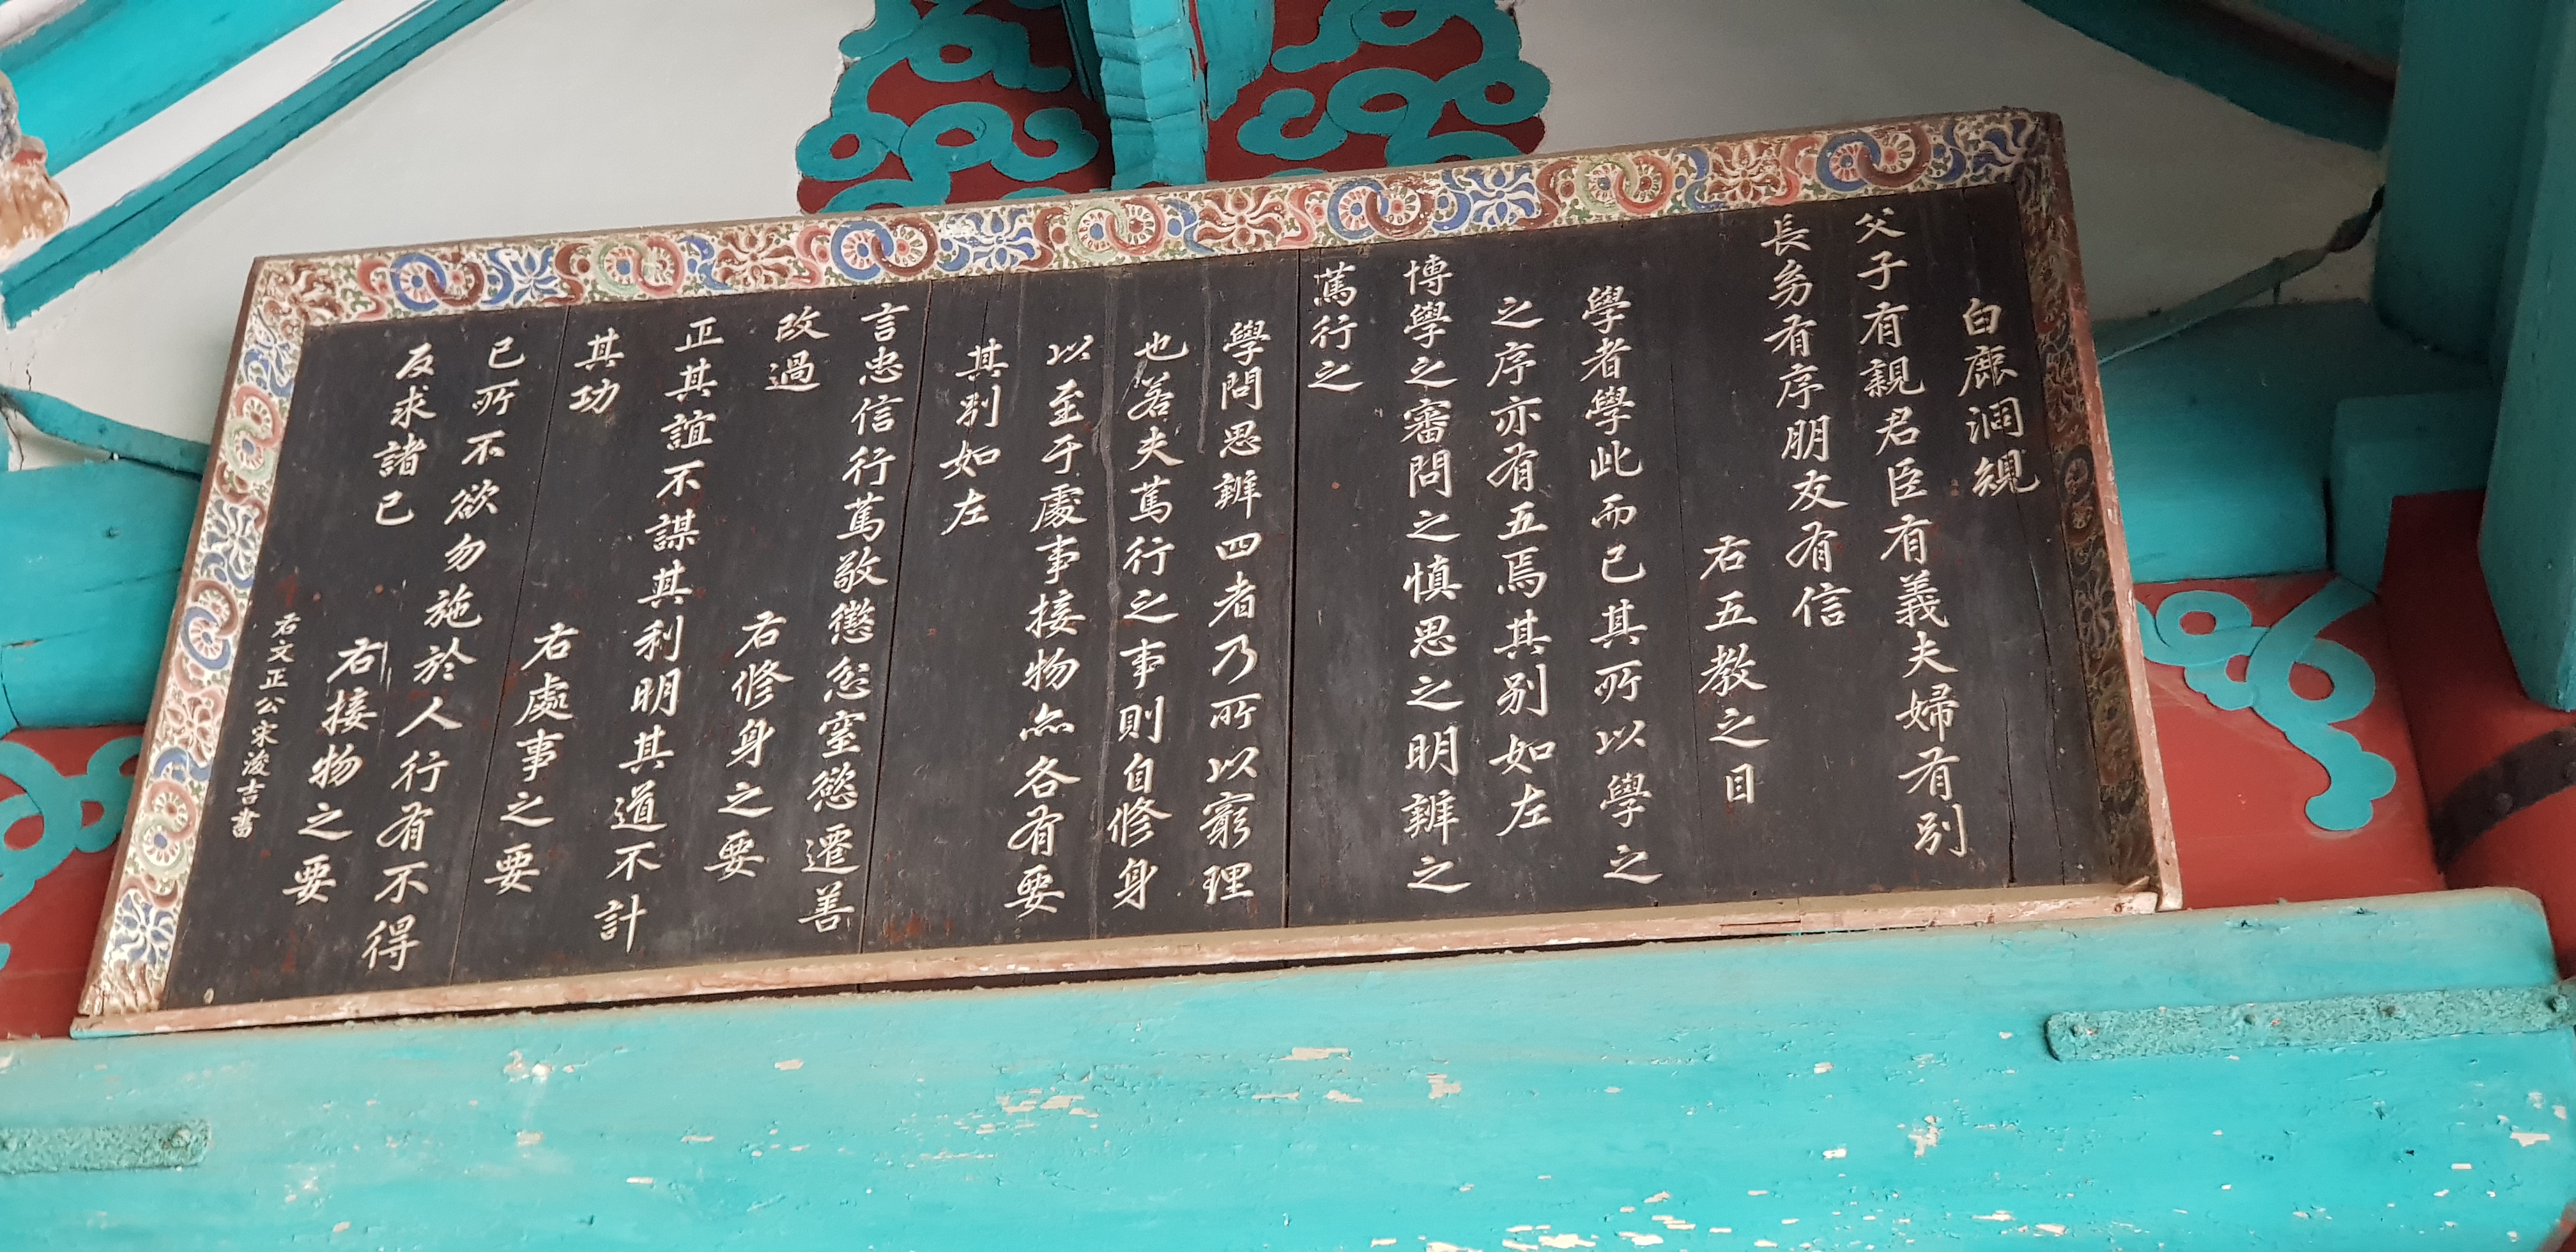 白鹿洞規
父子有親君臣有義夫婦有別
長幼有序朋友有信
右五教之目
學者學此而已其所以學之
之序亦有五焉其別如左
博學之審問之慎思之明辨之
篤行之
學問思辨四者乃所以窮理
也若夫篤行之事則自修身
以至于處事接物亦各有要
其別如左
言忠信行篤敬懲忿窒慾遷善
改過
右修身之要
正其誼不謀其利明其道不計
其功
右處事之要
己所不欲勿施於人行有不得
反求諸己
右接物之要
右文正公宋浚吉書